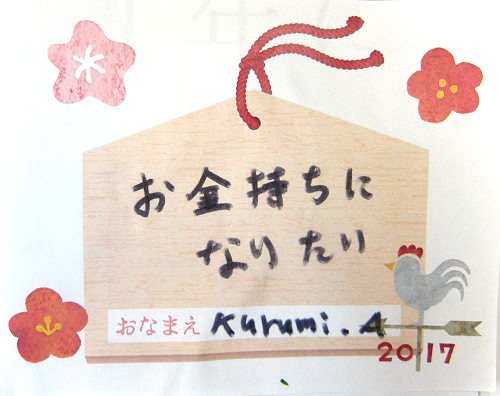 お金持ちに
なりたい
おなまえ Kurumi.A
2017